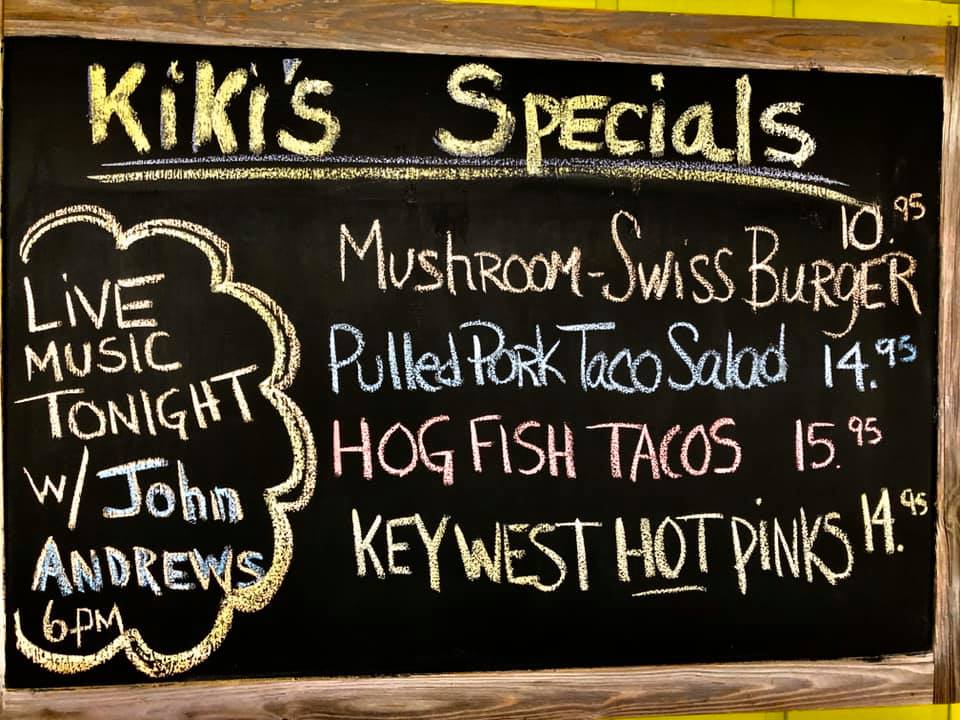 Kiki's Specials
LiVE
MUSIC
TONIGHT
w/ John
ANDREWS
6PM
MushROOM-Swiss BURgER 10.95
Pulled Pork Taco Salad 14.95
HOG FISH TACOS 15.95
KEY WEST HOT PiNKS 14.95